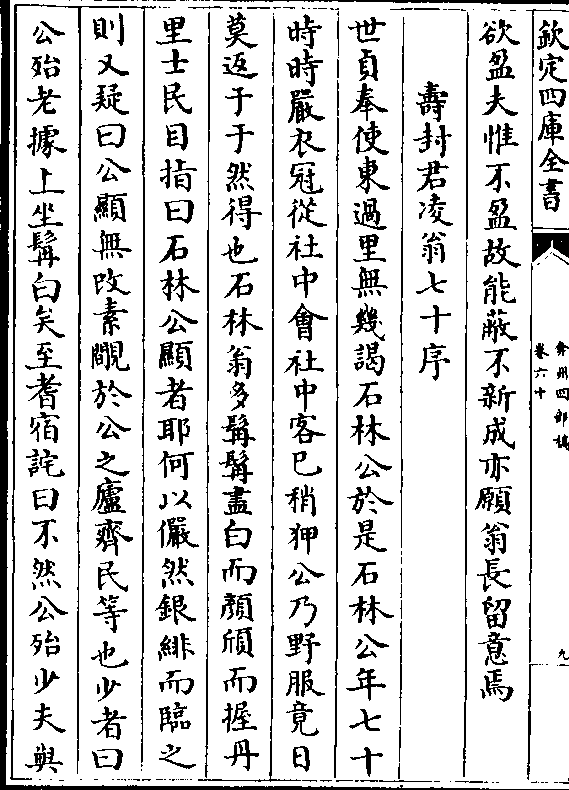 欽定四庫全書
弇州四部稿
卷六十
九
欲盈夫惟不盈故能蔽不新成亦願翁長留意焉
壽封君凌翁七十序
世貞奉使東過里無幾謁石林公於是石林公年七十
時時嚴衣冠從社中會社中客已稍狎公乃野服竟日
莫返于于然得也石林翁多髯髯盡白而顏頎而握丹
里士民目指曰石林公顯者耶何以儼然銀緋而臨之
則又疑曰公顯無改素覵於公之廬齊民等也少者曰
公殆老據上坐髯白矣至耆宿詫曰不然公殆少夫與